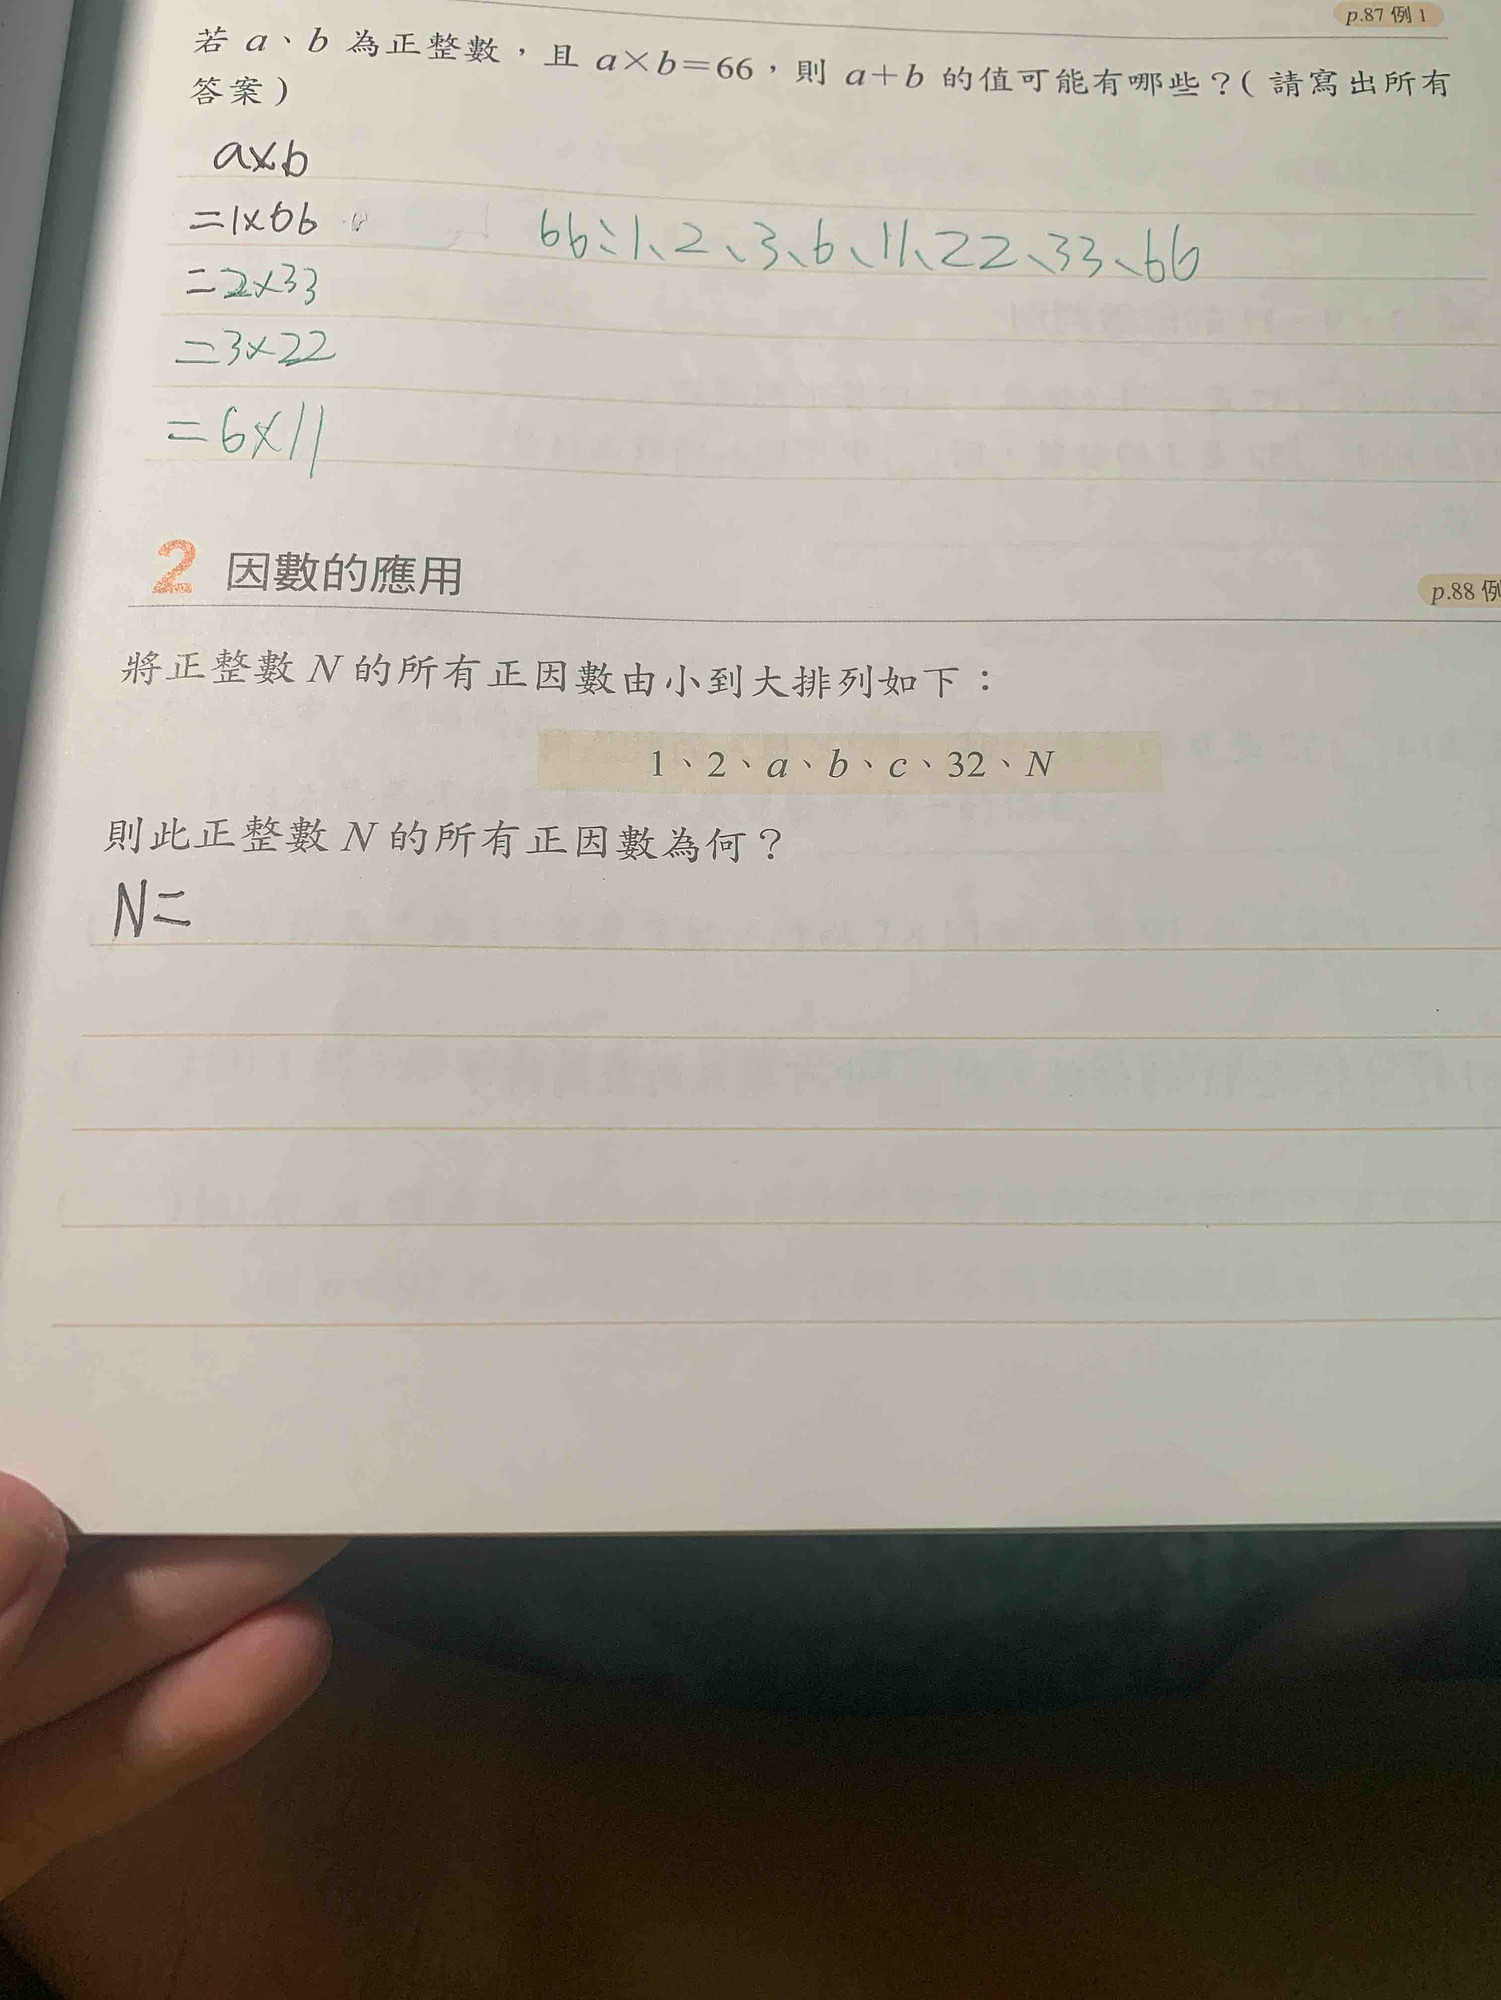 p.87 例 1
若 a、b 為正整數，且 a×b=66，則 a+b 的值可能有哪些？( 請寫出所有
答案 )
a×b
=1×66
66：1、2、3、6、11、22、33、66
=2×33
=3×22
=6×11
2 因數的應用
p.88 例
將正整數 N 的所有正因數由小到大排列如下：
1、2、a、b、c、32、N
則此正整數 N 的所有正因數為何？
N=